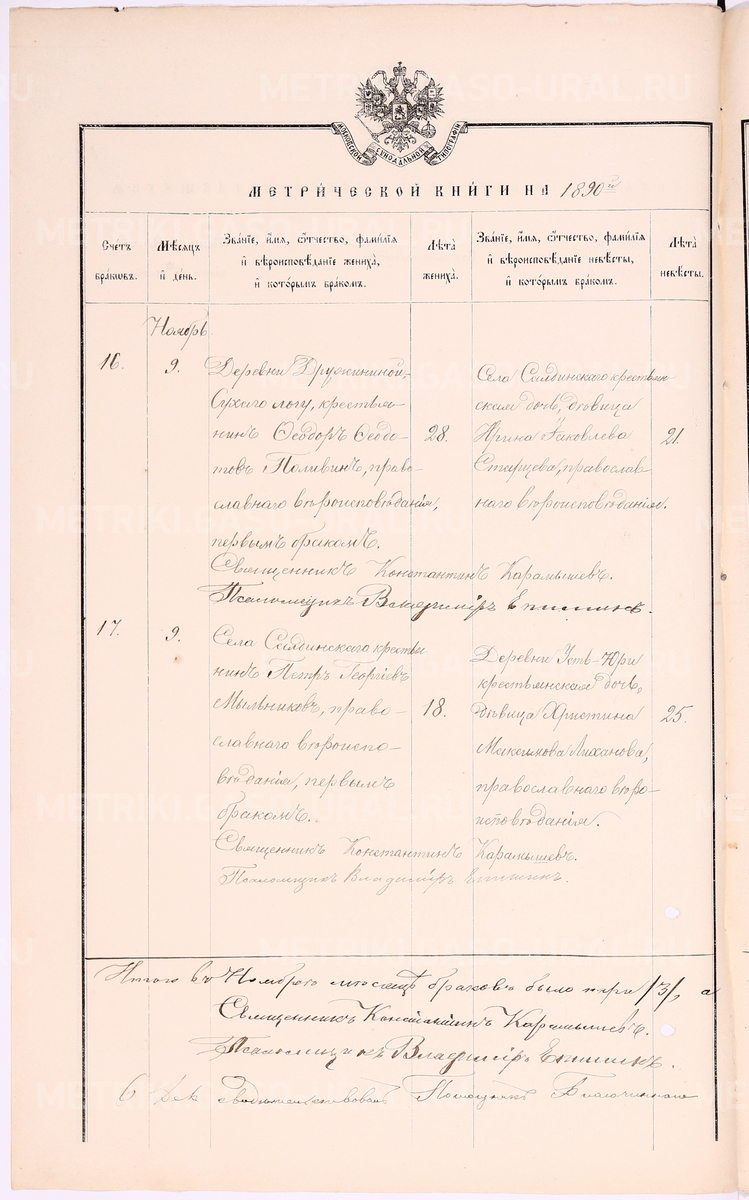 МОСКОВСКОЙ СѴНОДАЛЬНОЙ ТИПОГРАФІИ
МЕТРИ́ЧЕСКОЙ КНИ́ГИ НА 1890й
Счетъ бра́ковъ.
Мѣ́сяцъ и҆ день.
Зва́нїе, и҆́мя, ѻ҆́тчество, фами́лїя и҆ вѣроисповѣ́данїе жениха̀, и҆ кото́рымъ бра́комъ.
Лѣ̑та̀ жениха̀.
Зва́нїе, и҆́мя, ѻ҆́тчество, фами́лїя и҆ вѣроисповѣ́данїе невѣ́сты, и҆ кото́рымъ бра́комъ.
Лѣ̑та̀ невѣ́сты.
Ноябрь.
16.
9.
Деревни Дружининой,
Сухаго логу, крестья-
нинъ Ѳеодоръ Ѳеодо-
товъ Поливинъ, право-
славнаго вѣроисповѣданія,
первымъ бракомъ.
28.
Села Салдинскаго крестьян-
ская дочь, дѣвица
Ирина Яковлева
Старцева, православ-
наго вѣроисповѣданія.
21.
Священникъ Константинъ Карамышевъ.
Псаломщикъ Владиміръ Епишинъ.
17.
9.
Села Салдинскаго крестья
нинъ Петръ Георгіевъ
Мыльниковъ, право-
славнаго вѣроиспо-
вѣданія, первымъ
бракомъ.
18.
Деревни Усть-Юри
крестьянская дочь,
дѣвица Христина
Максимова Лиханова,
православнаго вѣро-
исповѣданія.
25.
Священникъ Константинъ Карамышевъ.
Псаломщикъ Владиміръ Епишинъ.
Итого въ Ноябрѣ мѣсяцѣ браковъ было три /3/, а
Священникъ Константинъ Карамышевъ.
Псаломщикъ Владиміръ Епишинъ.
6 Дек свидѣтельствовалъ Помощникъ Благочиннаго
METRIKI.GASO-URAL.RU